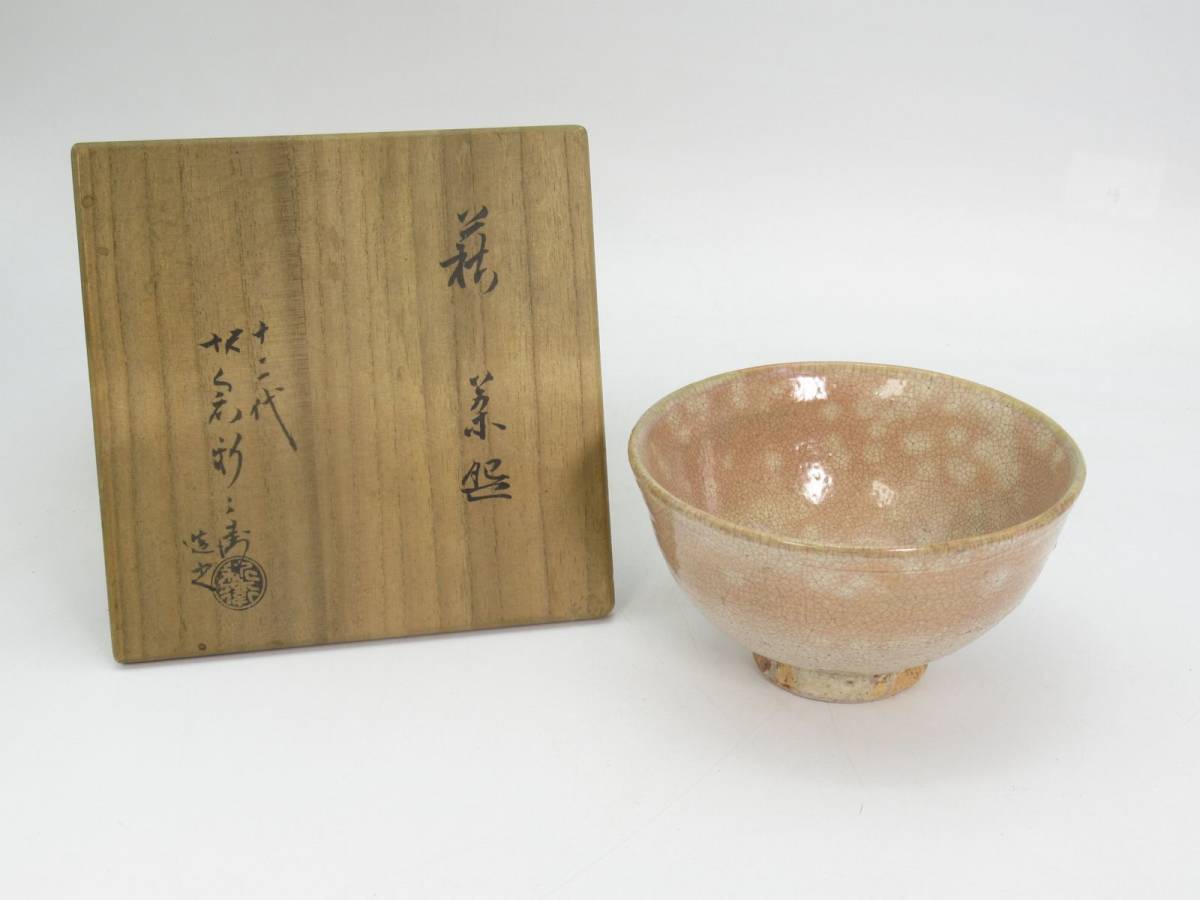 萩 茶盌
十二代
坂倉新兵衛
造之